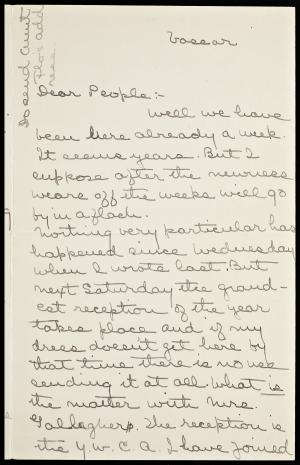 To send Aunt
Flo's add
ress.
Vassar
Dear People:-
Well we have
been here already a week.
It seems years. But I
suppose after the newness
wears off the weeks will go
by in a flash.
Nothing very particular has
happened since Wednesday
when I wrote last. But
next Saturday the grand-
est reception of the year
takes place and if my
dress doesn't get here by
that time there is no use
sending it at all. What is
the matter with Mrs.
Gallaghers. The reception is
the Y.W.C.A. I have joined